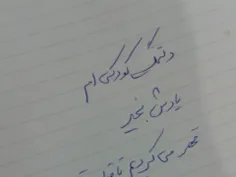 دلتنگ کودکی ام
یادش بخیر
قهر می کردیم تا